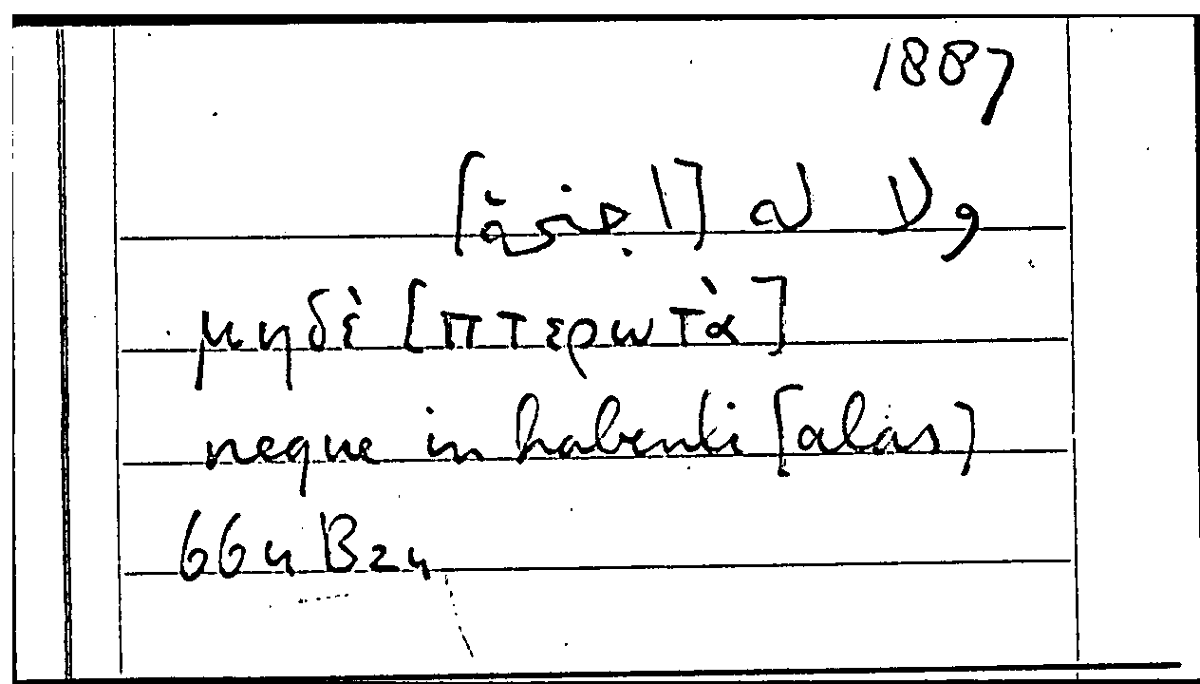 1887
ولا له [اجنحة]
μηδὲ [πτερωτὰ]
neque in habenti [alas]
664 B 24